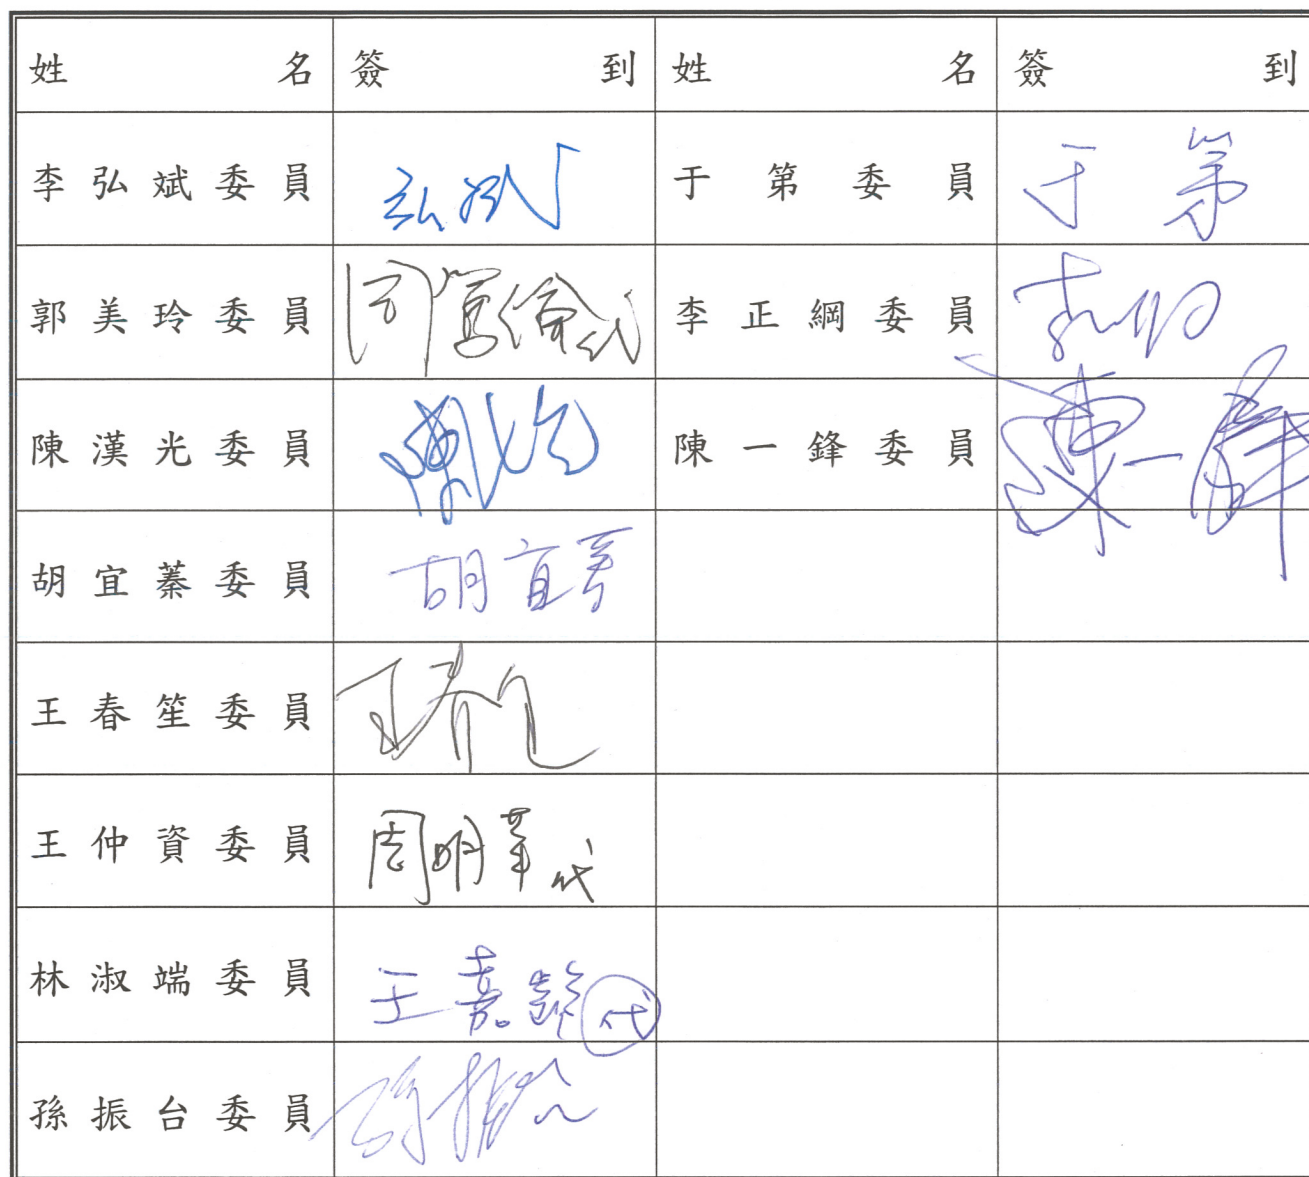 姓名 簽到 姓名 簽到
李弘斌委員 弘斌 于第委員 于第
郭美玲委員 代 李正綱委員
陳漢光委員 陳一鋒委員 陳一鋒
胡宜蓁委員 胡宜蓁
王春笙委員 王春笙
王仲資委員 周明華代
林淑端委員 王嘉齡代
孫振台委員 孫振台